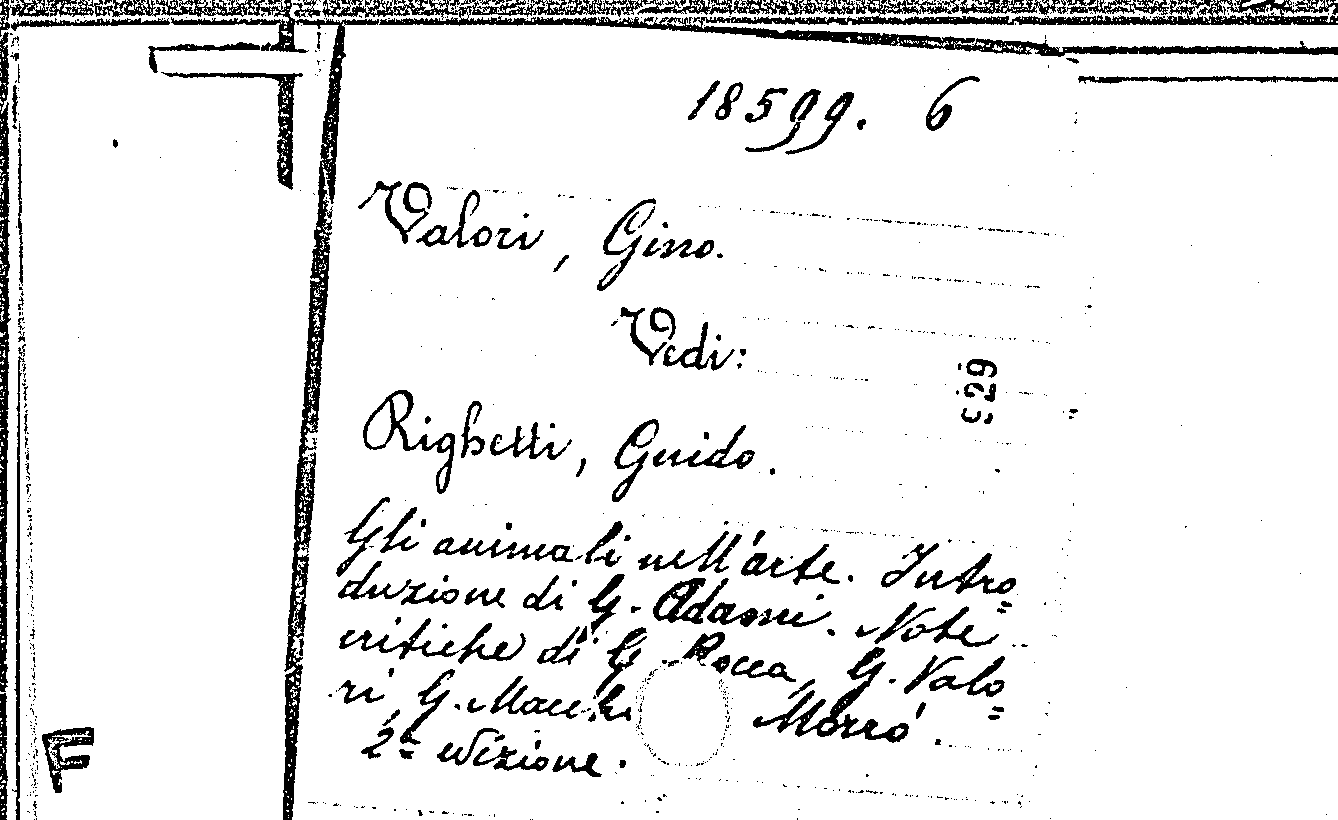 18599. 6
Valori, Gino.
Vedi:
929
Righetti, Guido.
Gli animali nell'arte. Intro=
duzione di G. Adami. Note
critiche di G. Rocca, G. Valo=
ri, G. Macchi Morró.
2ª edizione.
F